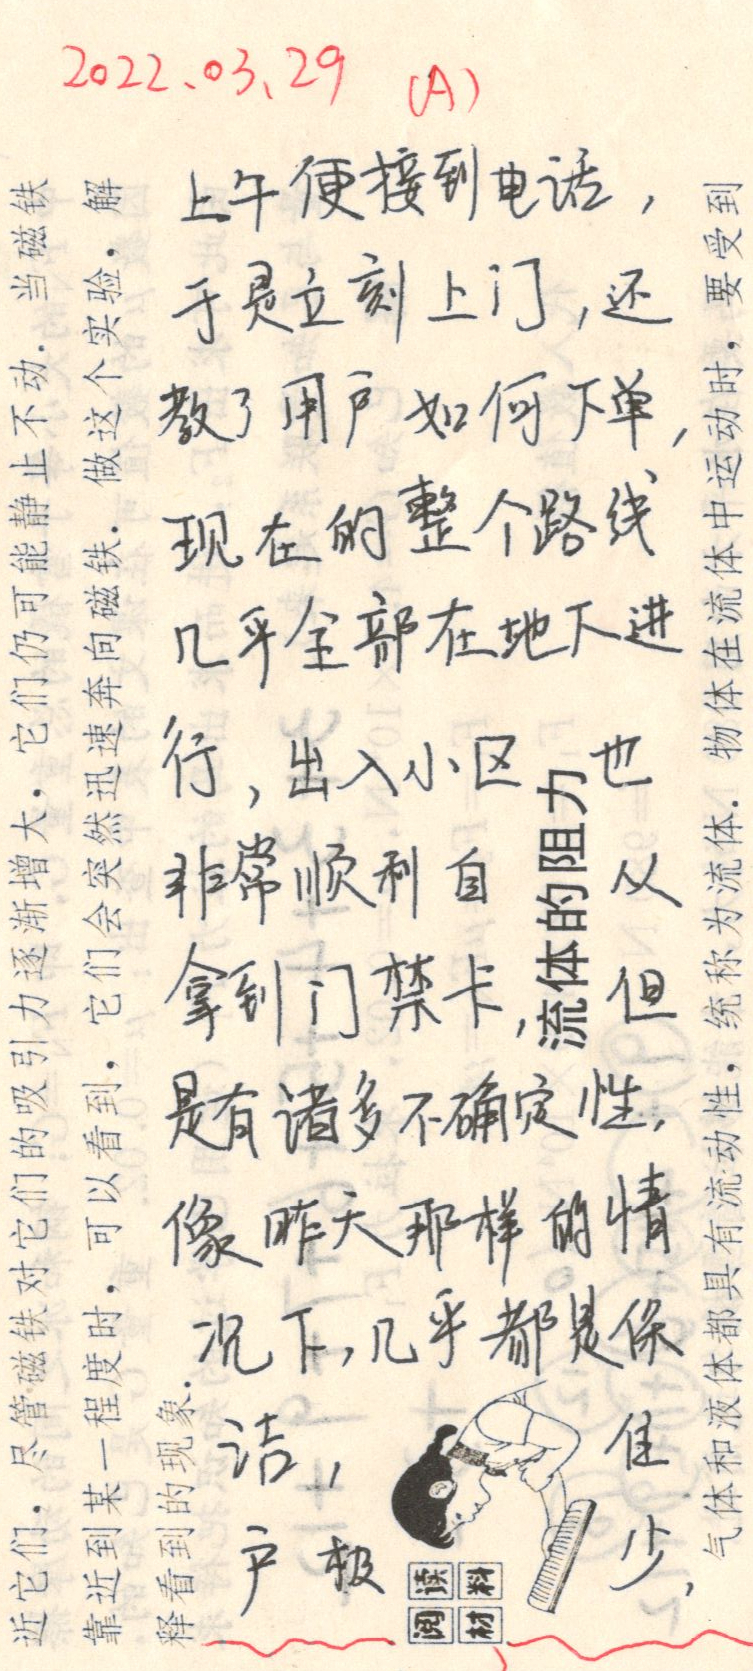 2022.03.29 (A)
上午便接到电话，
于是立刻上门，还
教了用户如何下单，
现在的整个路线
几乎全部在地下进
行，出入小区也
非常顺利自从
拿到门禁卡，但
是有诸多不确定性，
像昨天那样的情
况下，几乎都是保
洁，住
户极少，
近它们，尽管磁铁对它们的吸引力逐渐增大，它们仍可能静止不动．当磁铁
靠近到某一程度时，可以看到，它们会突然迅速奔向磁铁．做这个实验，解
释看到的现象．
阅读材料
流体的阻力
气体和液体都具有流动性，统称为流体．物体在流体中运动时，要受到